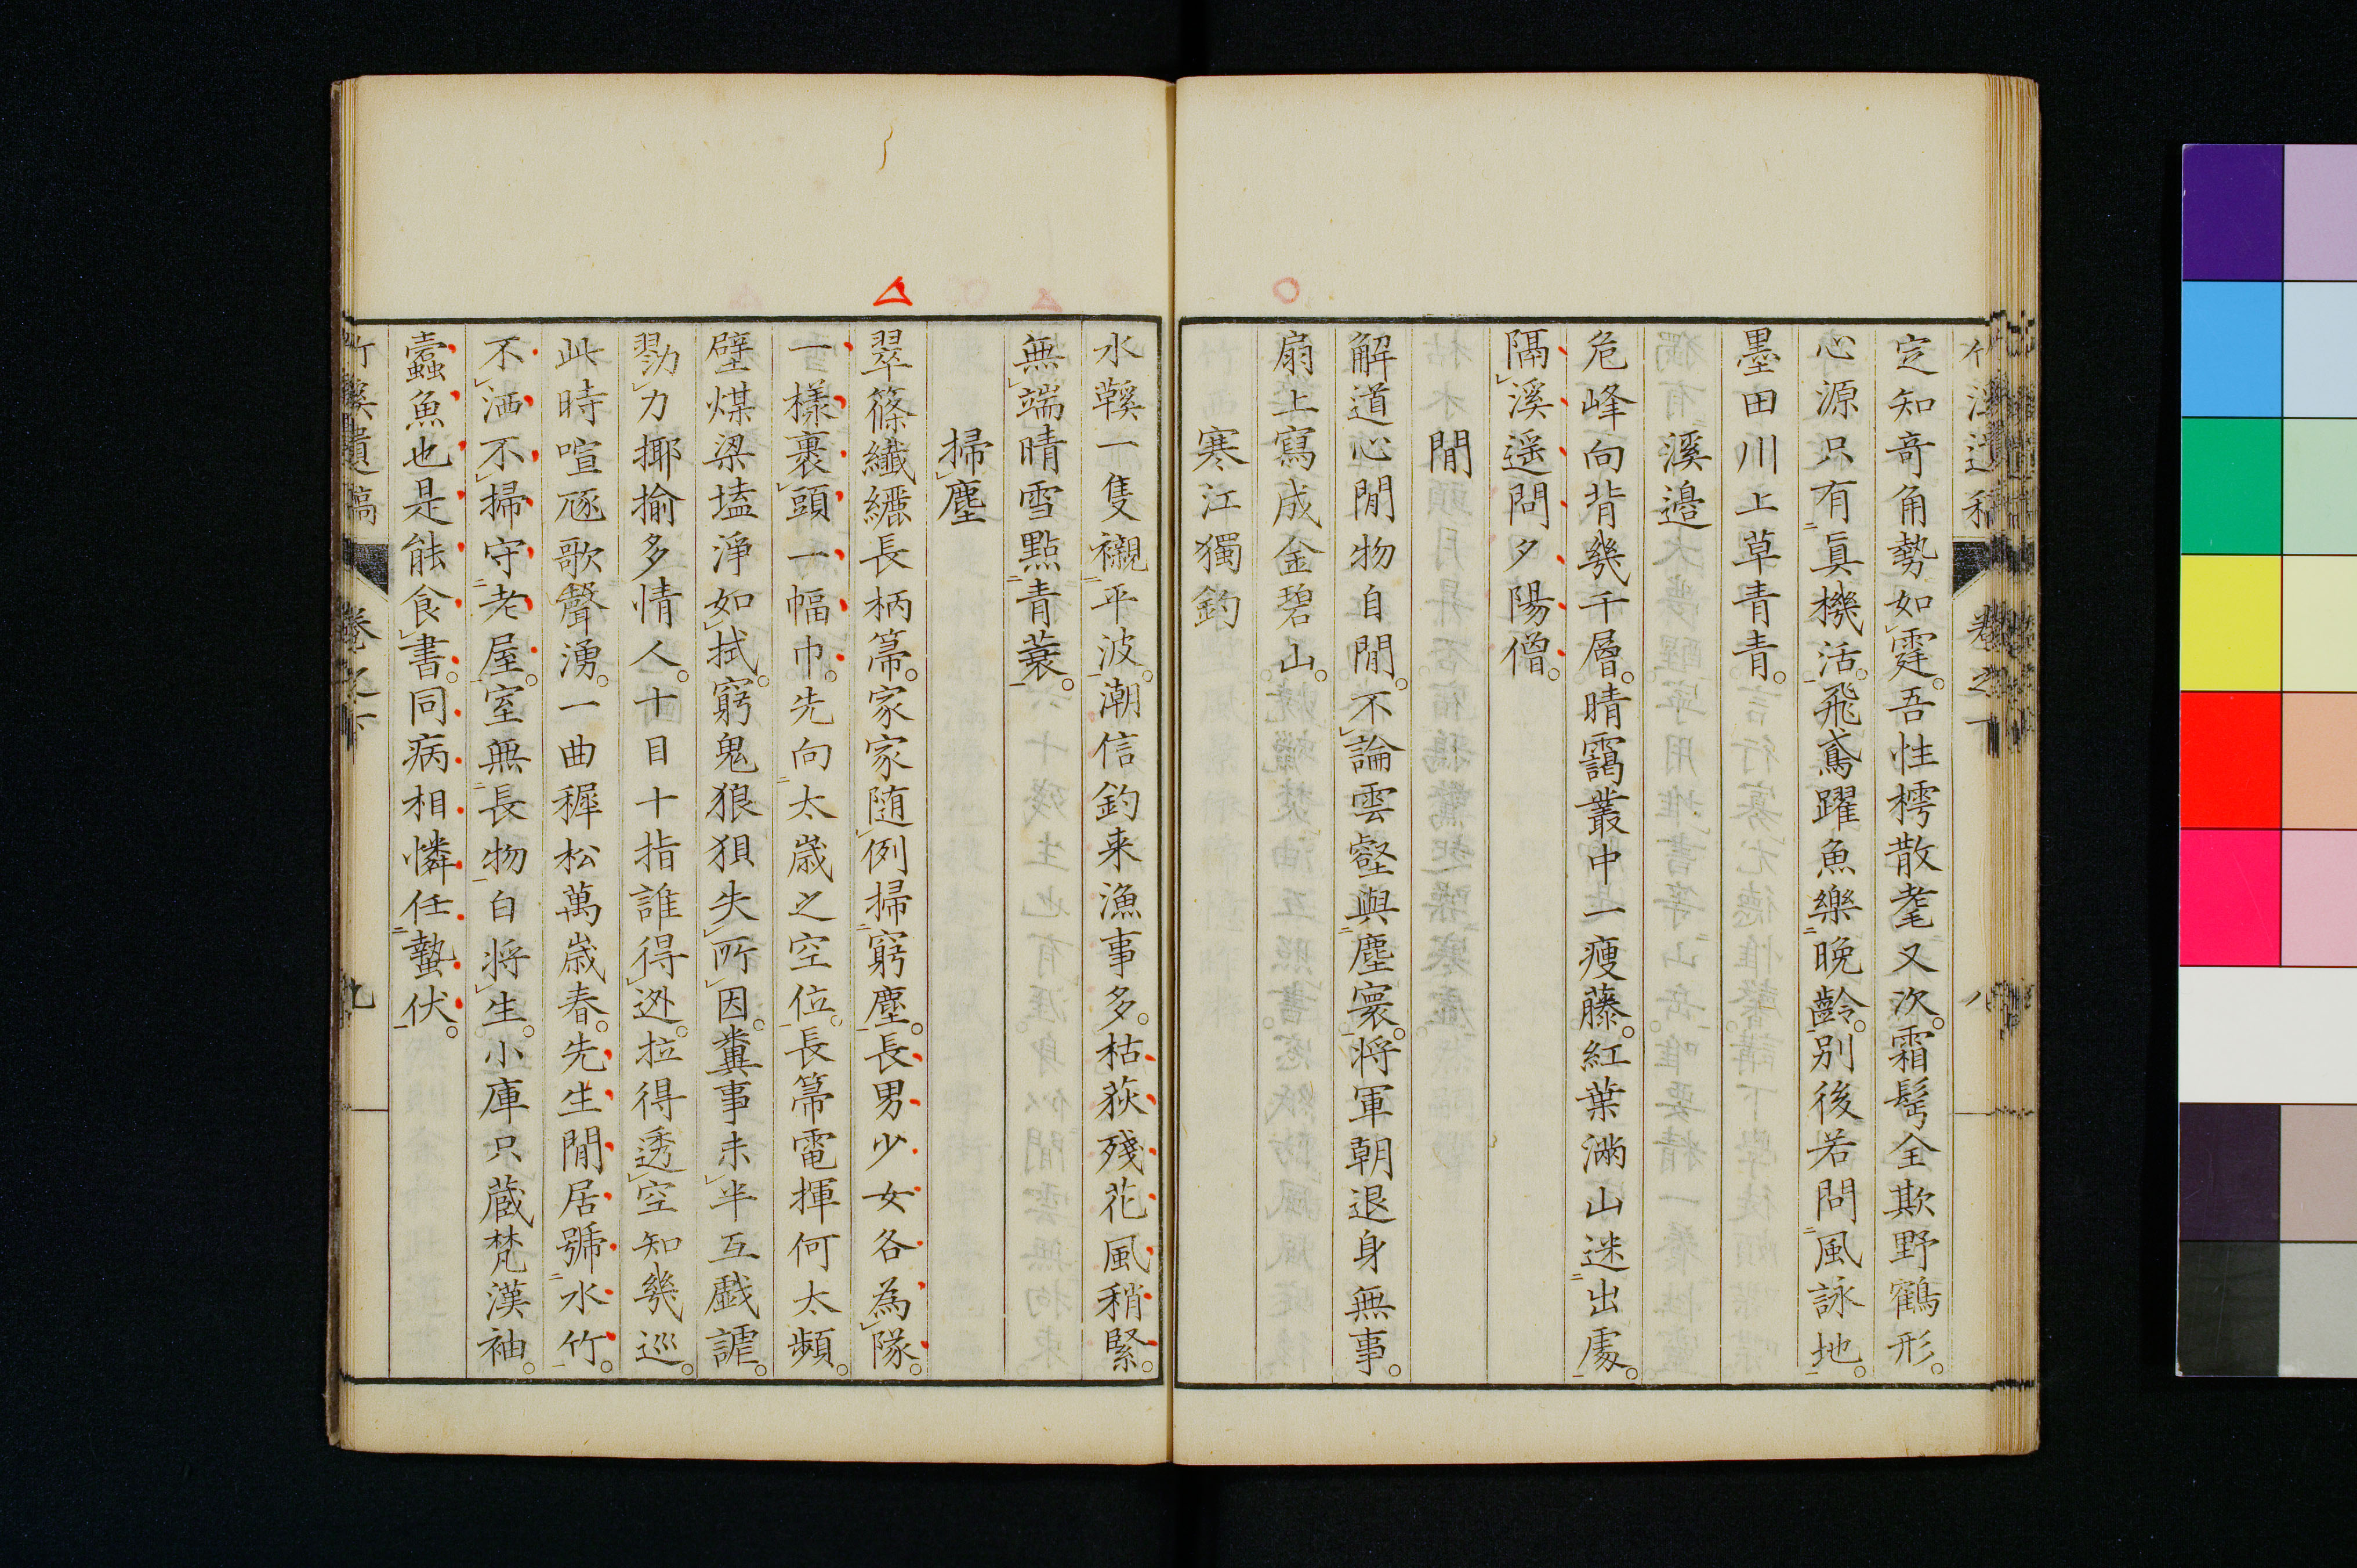 定知奇角勢如霆。吾性樗散耄又次。霜髩全欺野鶴形。
心源只有眞機活。飛鳶躍魚樂晩齡。別後若問風詠地。
墨田川上草青青。
溪邉
危峰向背幾千層。晴靄叢中一瘦藤。紅葉滿山迷出處。
隔溪遥問夕陽僧。
閒
解道心閒物自閒。不論雲壑與塵寰。将軍朝退身無事。
扇上寫成金碧山。
寒江獨釣
水鞵一隻襯平波。潮信釣来漁事多。枯荻殘花風稍緊。
無端晴雪點青蓑。
掃塵
翠篠纖纚長柄箒。家家随例掃窮塵。長男少女各為隊。
一樣裹頭一幅巾。先向太歳之空位。長箒電揮何太頻。
壁煤梁𡏖淨如拭。窮鬼狼狽失所因。糞事未半互戯謔。
勠力揶揄多情人。十目十指誰得迯。拉得透空知幾巡。
此時喧豗歌聲湧。一曲穉松萬歳春。先生閒居號水竹。
不洒不掃守老屋。室無長物白将生。小庫只蔵梵漢袖。
蠹魚也是能食書。同病相憐任蟄伏。
竹溪遺稿 卷之下 九
卷之下 八